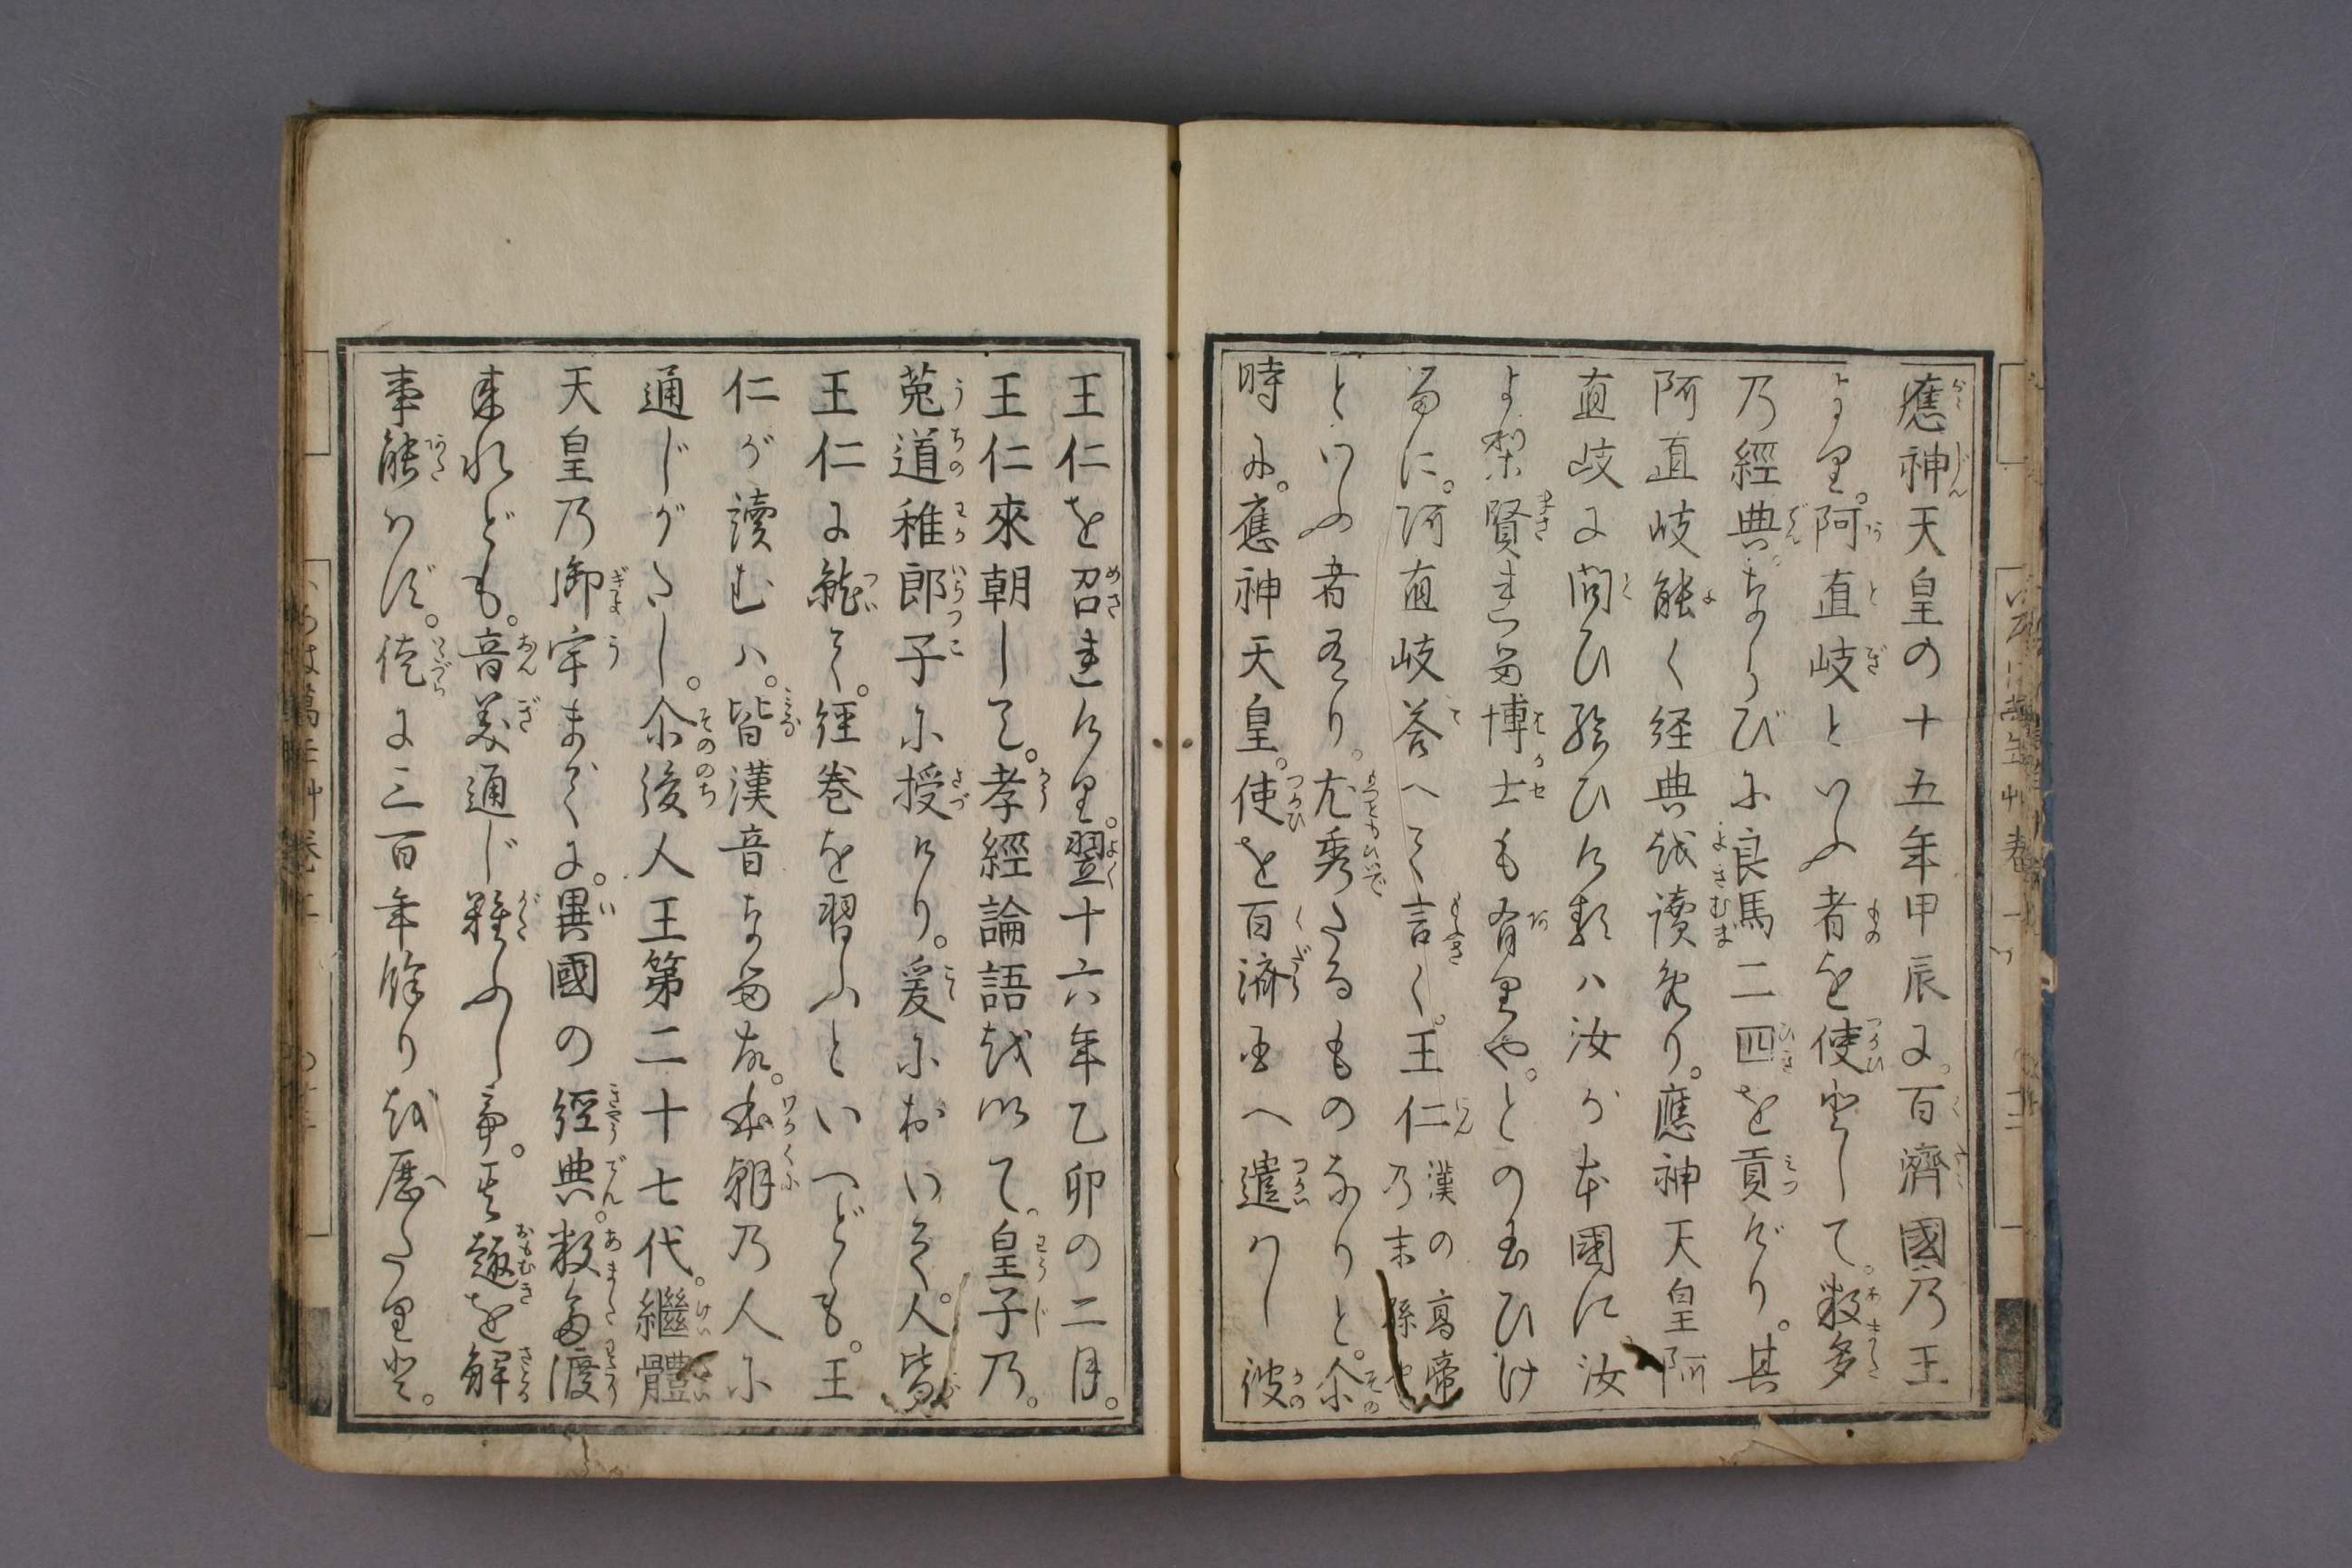 應神天皇の十五年甲辰に。百濟國乃王
より。阿直岐といふ者を使として。数多
乃經典。ならびに良馬二匹を貢げり。其
阿直岐能く経典を讀めり。應神天皇阿
直岐に問ひ給ひけるハ汝が本國に汝
より賢れる博士も有りや。との玉ひけ
るに。阿直岐荅へて言く。王仁漢の高帝乃末孫や
といふ者有り。尤秀たるものなりと。尒
時に。應神天皇。使を百濟国へ遣ハし彼
王仁を召れけり。翌十六年乙卯の二月。
王仁來朝して。孝經論語を以て。皇子乃。
菟道稚郎子に授けり。爰において。人皆
王仁に就て。経巻を習ふといへども。王
仁が讀むハ。皆漢音なる故。本朝乃人に
通じがたし。尒後人王第二十七代。繼體
天皇乃御宇までに。異國の經典。数多渡
来れども。音義通じ難ふして。其趣を解
事能ハず。徒に三百年餘りを歴たりと。